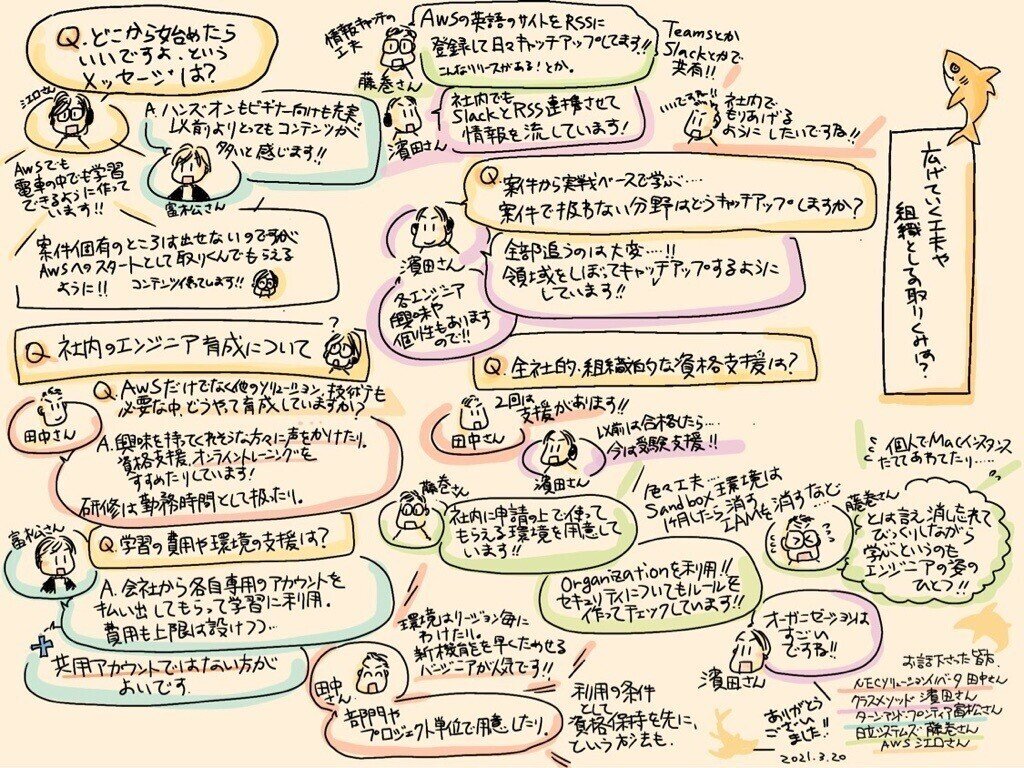 Q.どこから始めたら
いいですよ、という
メッセージは?
シエロさん
A.ハンズオンもビギナー向けも充実
以前よりとってもコンテンツが
多いと感じます!!
冨松さん
AWSでも
電車の中でも学習
できるように作って
います!!
案件個有のところは出せないのですが
AWSへのスタートとして取りくんでもらえる
ように!!
コンテンツ作ってます!!
情報キャッチの
工夫
藤巻さん
AWSの英語のサイトをRSSに
登録して日々キャッチアップしてます!!
こんなリリースがある!とか。
Teamsとか
Slackとかで
共有!!
濱田さん
社内でも
SlackとRSS連携させて
情報を流しています!
いいですね!!
社内で
もりあげる
ようにしたいですね!!
広げていく工夫や
組織としての取りくみは?
Q.案件から実戦ベースで学ぶ…
案件で扱わない分野はどうキャッチアップしますか?
濱田さん
全部追うのは大変…!!
領域をしぼってキャッチアップするように
しています!!
各エンジニア
興味や
個性もあります
ので!!
Q 社内のエンジニア育成について
?
Q.AWSだけでなく他のソリューション、技術も
必要な中、どうやって育成していますか?
田中さん
A.興味を持ってくれそうな方々に声をかけたり。
資格支援、オンライントレーニングを
すすめたりしています!
研修は勤務時間として扱たり。
Q.全社的・組織的な資格支援は?
田中さん
2回は
支援があります!!
濱田さん
以前は合格したら…
今は受験支援!!
冨松さん
Q.学習の費用や環境の支援は?
A.会社から各自専用のアカウントを
払い出してもらって学習に利用。
費用も上限は設けつつ…
+
共用アカウントではない方が
よいです。
藤巻さん
社内に申請の上で使って
もらえる環境を用意して
います!!
色々工夫…
Sandbox環境は
1ヶ月したら消す
IAMを消すなど
Organizationを利用!!
セキュリティについてもルールを
作ってチェックしています!!
個人でMacインスタンス
たててあわてたり…
藤巻さん
とは言え消し忘れて
びっくりしながら
学ぶというのも
エンジニアの姿の
ひとつ!!
濱田さん
オーガニゼーションは
すごい
ですね!!
田中さん
環境はリージョン毎に
わけたり。
新機能を早くためせる
バージニアが人気です!!
部門や
プロジェクト単位で用意したり。
利用の条件
として
資格保持を先に、
という方法も.
ありがとう
ございまし
ました!!
2021.3.20
お話下さった皆さん
NECソリューションイノベータ 田中さん
クラスメソッド 濱田さん
ターンアンドフロンティア 冨松さん
日立システムズ 藤巻さん
AWS シエロさん